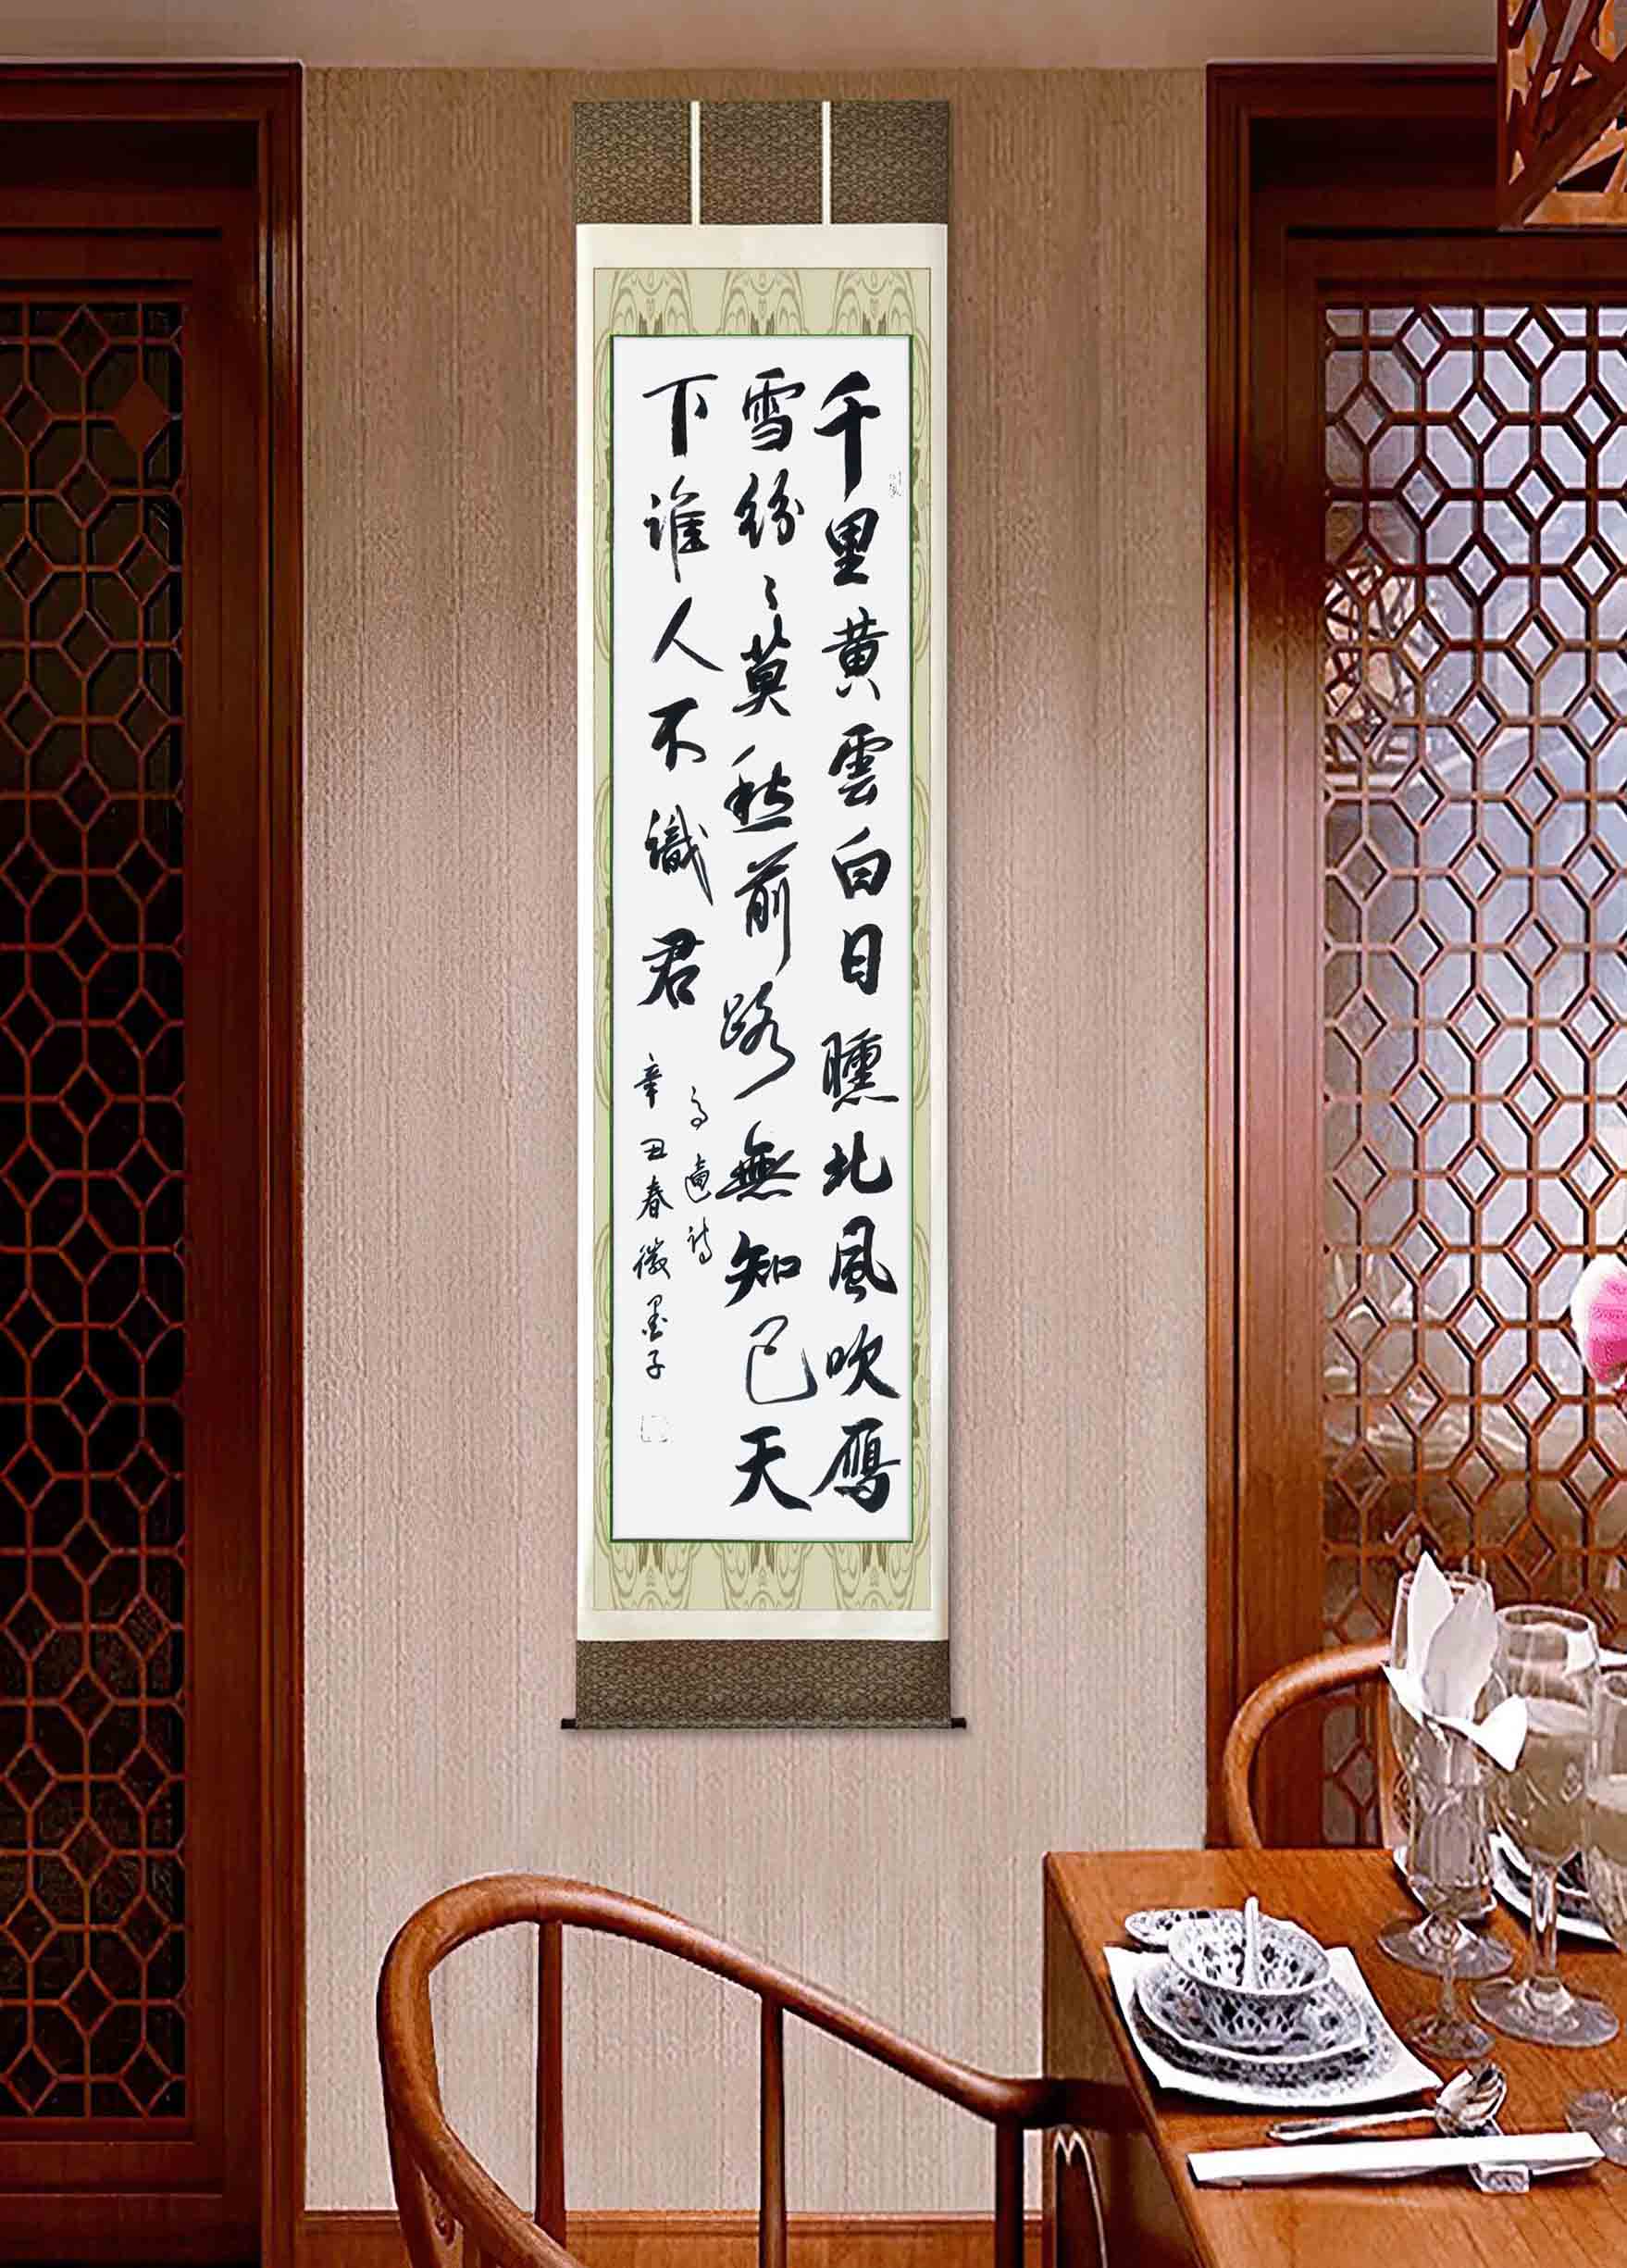 千里黄雲白日曛北風吹雁
雪紛々莫愁前路無知己天
下誰人不識君
高適詩
辛丑春微墨子